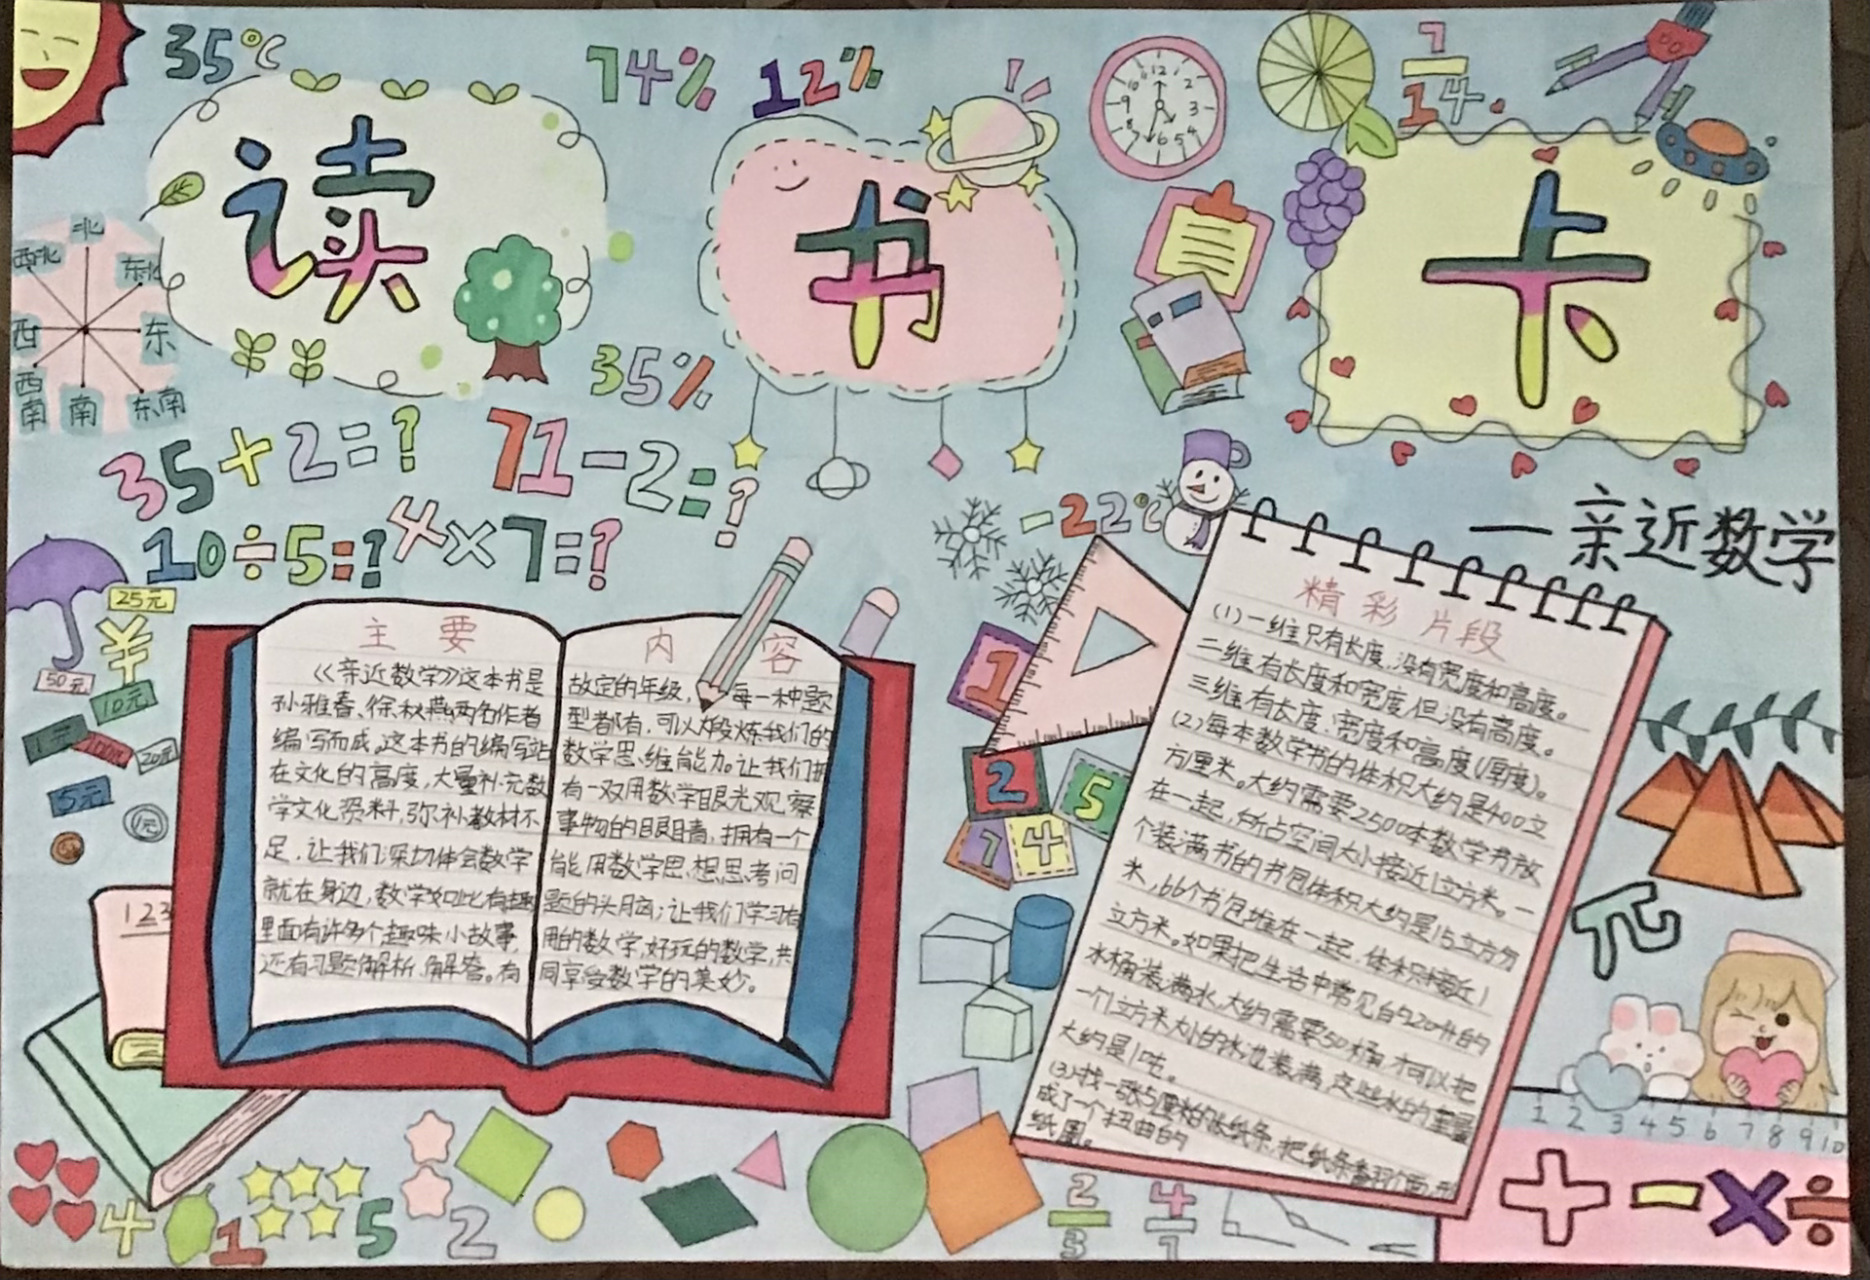 35℃
74%
12%
7/14
读书卡
12
1
2
3
4
5
6
8
9
10
11
北
西北
东北
西
东
西南
南
东南
35%
35+2=?
71-2=?
10÷5=?
4×7=?
-22℃
——亲近数学
25元
¥
50元
10元
1元
100元
20元
5元
1元
123
主要内容
《亲近数学》这本书是
孙雅春、徐秋燕两名作者
编写而成。这本书的编写站
在文化的高度,大量补充数
学文化资料,弥补教材不
足,让我们深切体会数学
就在身边,数学如此有趣
里面有许多个趣味小故事,
还有习题解析、解答。有
故定的年级,每一种题
型都有,可以锻炼我们的
数学思维能力。让我们拥
有一双用数学眼光观察
事物的眼睛,拥有一个
能用数学思想思考问
题的头脑;让我们学习有
用的数学,好玩的数学,共
同享受数学的美妙。
精彩片段
(1)一维只有长度,没有宽度和高度。
二维有长度和宽度但没有高度。
三维有长度、宽度和高度(厚度)。
(2)每本数学书的体积大约是400立
方厘米。大约需要2500本数学书放
在一起,所占空间大小接近1立方米。一
个装满书的书包体积大约是15立方分
米,66个书包堆在一起,体积接近1
立方米。如果把生活中常见的20升的
水桶装满水,大约需要50桶才可以把
一个1立方米大小的水池装满,这些水的重量
大约是1吨。
(3)找一张5厘米的长纸条,把纸条翻个面,形
成了一个扭曲的
纸圈。
1
2
5
7
4
π
1 2 3 4 5 6 7 8 9 10
4
1
5
2
2/3
4/7
+ - × ÷